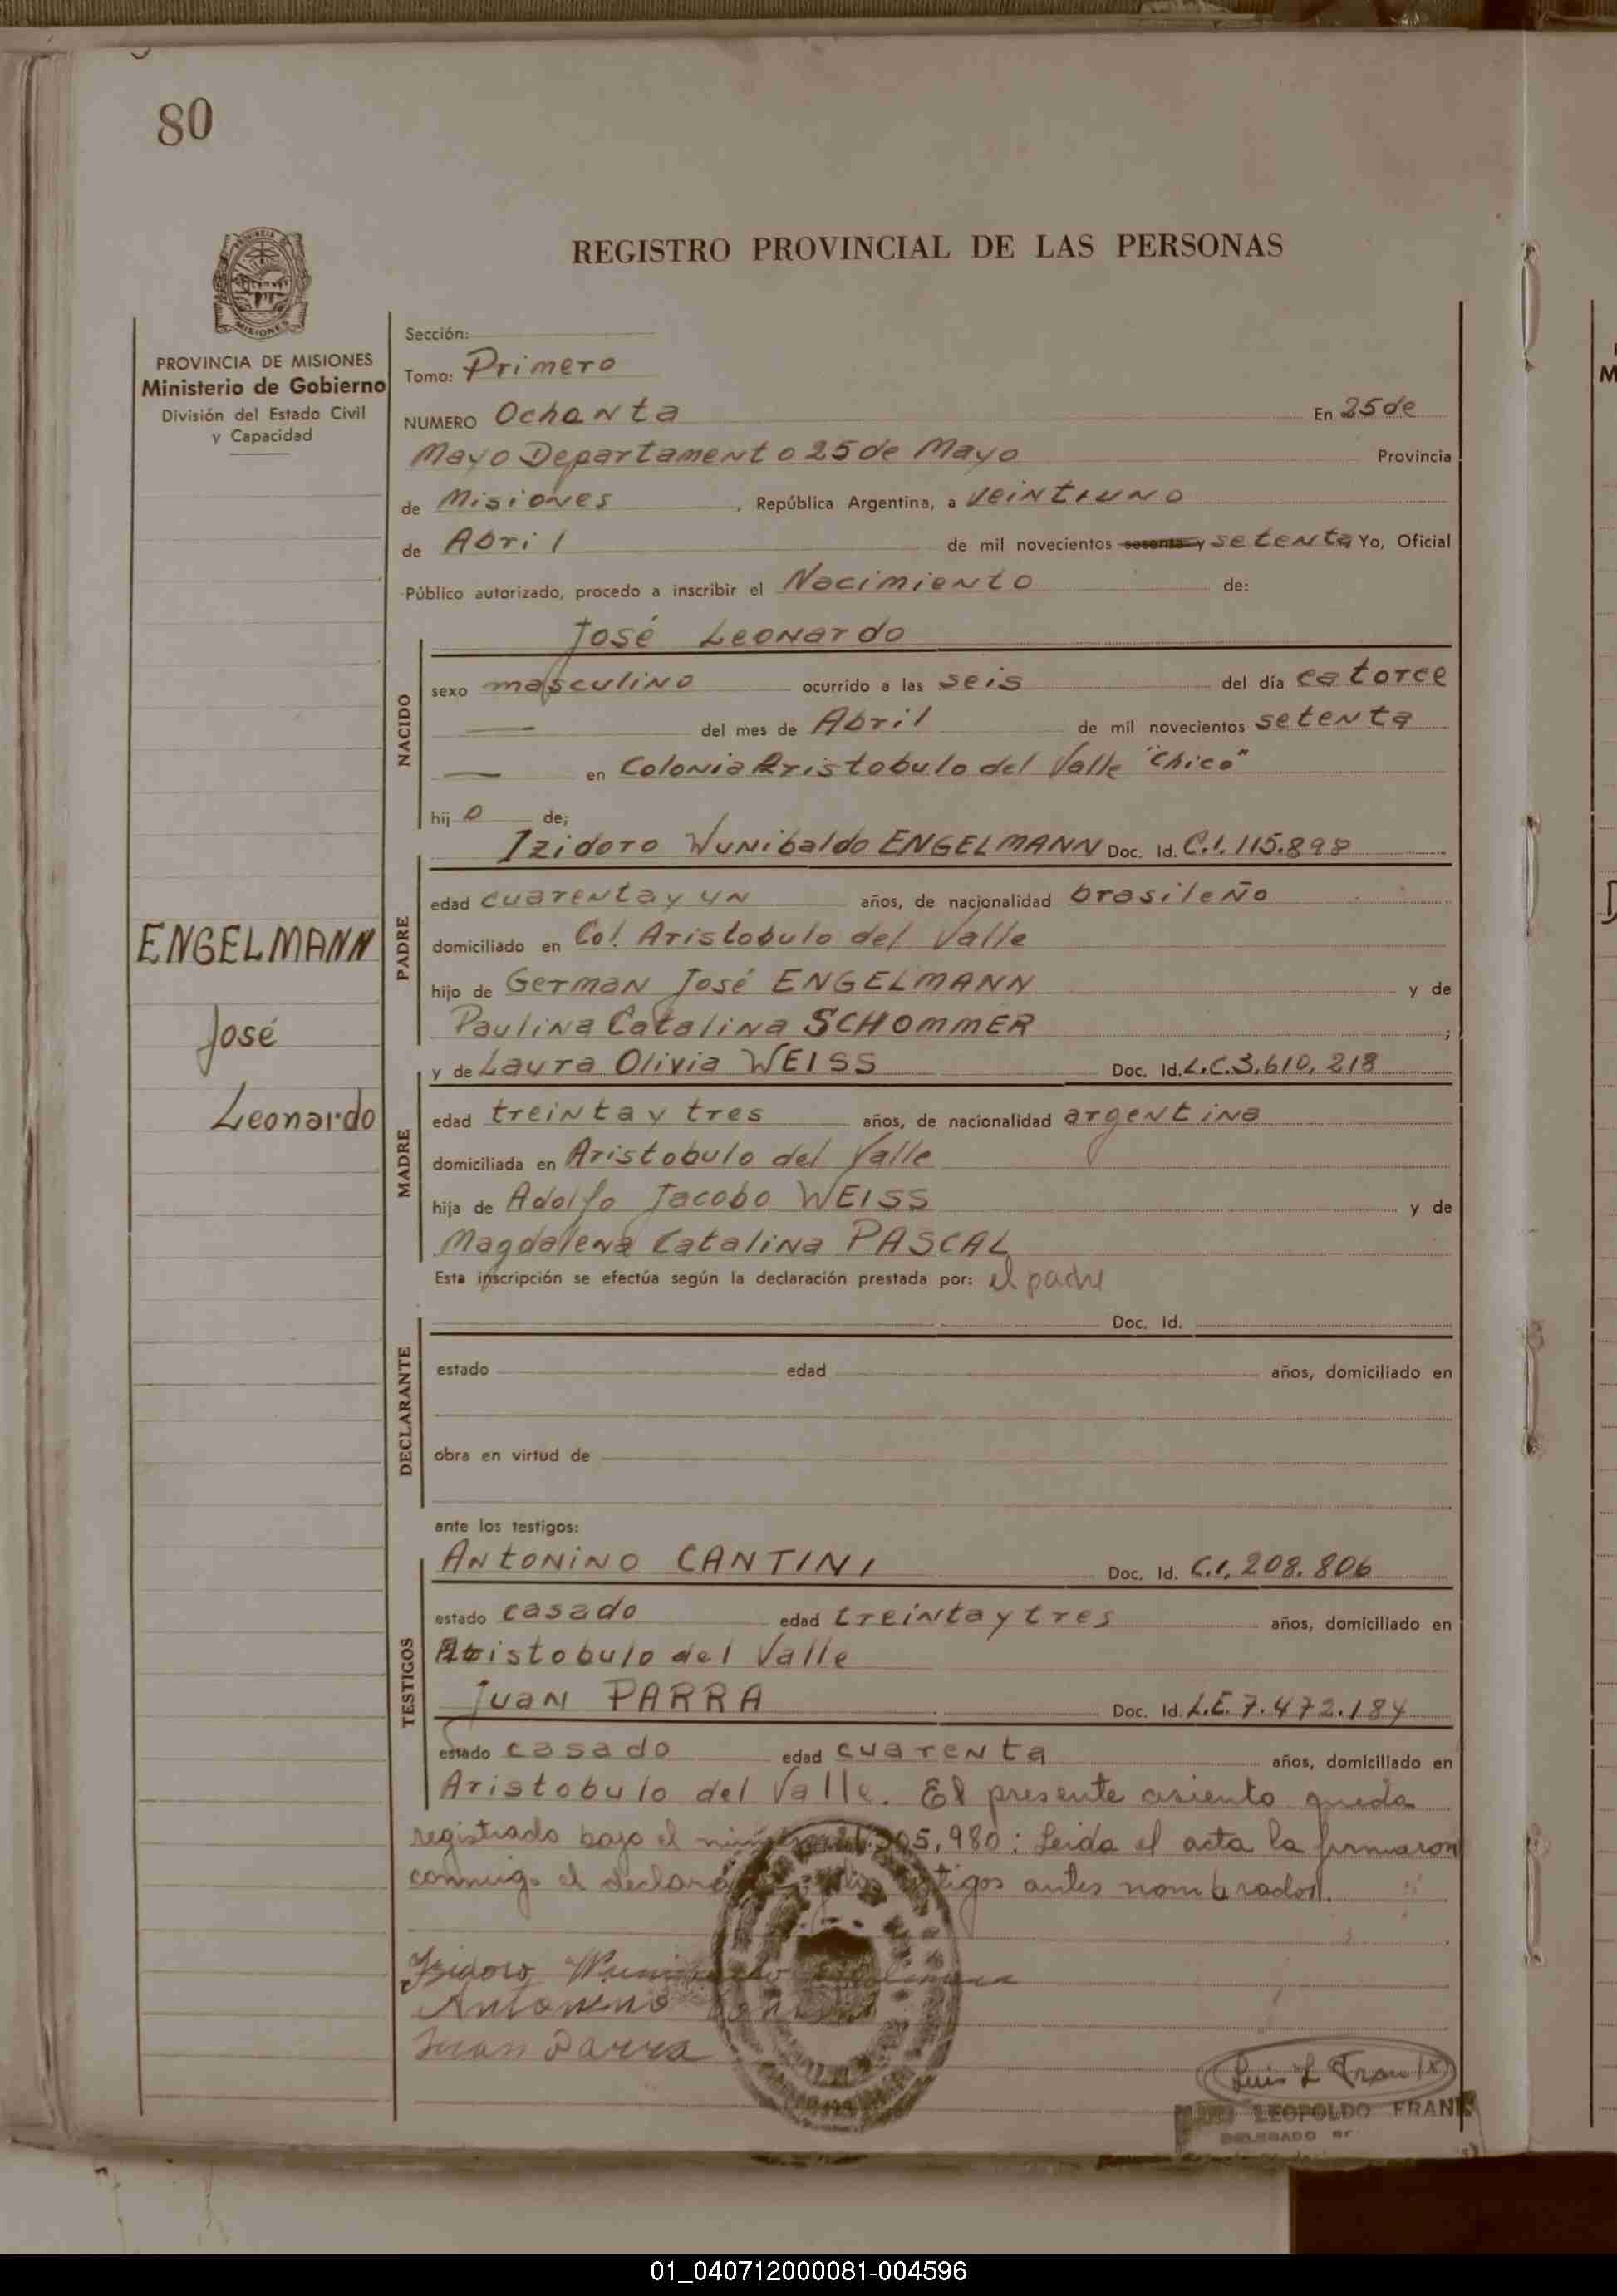 80
REGISTRO PROVINCIAL DE LAS PERSONAS
PROVINCIA DE MISIONES
Ministerio de Gobierno
División del Estado Civil
y Capacidad
Sección:
Tomo: Primero
NUMERO Ochenta En 25 de
Mayo Departamento 25 de Mayo Provincia
de Misiones, República Argentina, a veintiuno
de Abril de mil novecientos sesenta y setenta Yo, Oficial
Público autorizado, procedo a inscribir el Nacimiento de:
José Leonardo
NACIDO
sexo masculino ocurrido a las seis del día catorce
— del mes de Abril de mil novecientos setenta
— en Colonia Aristobulo del Valle "Chico"
hijo de;
Izidoro Wunibaldo ENGELMANN Doc. Id. C.I. 115.898
PADRE
edad cuarenta y un años, de nacionalidad brasileño
domiciliado en Col. Aristobulo del Valle
hijo de German José ENGELMANN y de
Paulina Catalina SCHOMMER;
ENGELMANN
José
Leonardo
y de Laura Olivia WEISS Doc. Id. L.C. 3.610.218
MADRE
edad treinta y tres años, de nacionalidad argentina
domiciliada en Aristobulo del Valle
hija de Adolfo Jacobo WEISS y de
Magdalena Catalina PASCAL
Esta inscripción se efectúa según la declaración prestada por: el padre
Doc. Id.
DECLARANTE
estado edad años, domiciliado en
obra en virtud de
ante los testigos:
ANTONINO CANTINI Doc. Id. C.I. 208.806
TESTIGOS
estado casado edad treinta y tres años, domiciliado en
Aristobulo del Valle
Juan PARRA Doc. Id. L.E. 7.472.184
estado casado edad cuarenta años, domiciliado en
Aristobulo del Valle. El presente asiento queda
registrado bajo el 980: Leida el acta la firmaron
conmigo el testigos antes nombrados.
Izidoro
Antonino
Juan Parra
Luis L Frank
LEOPOLDO FRANK
DELEGADO
01_040712000081-004596